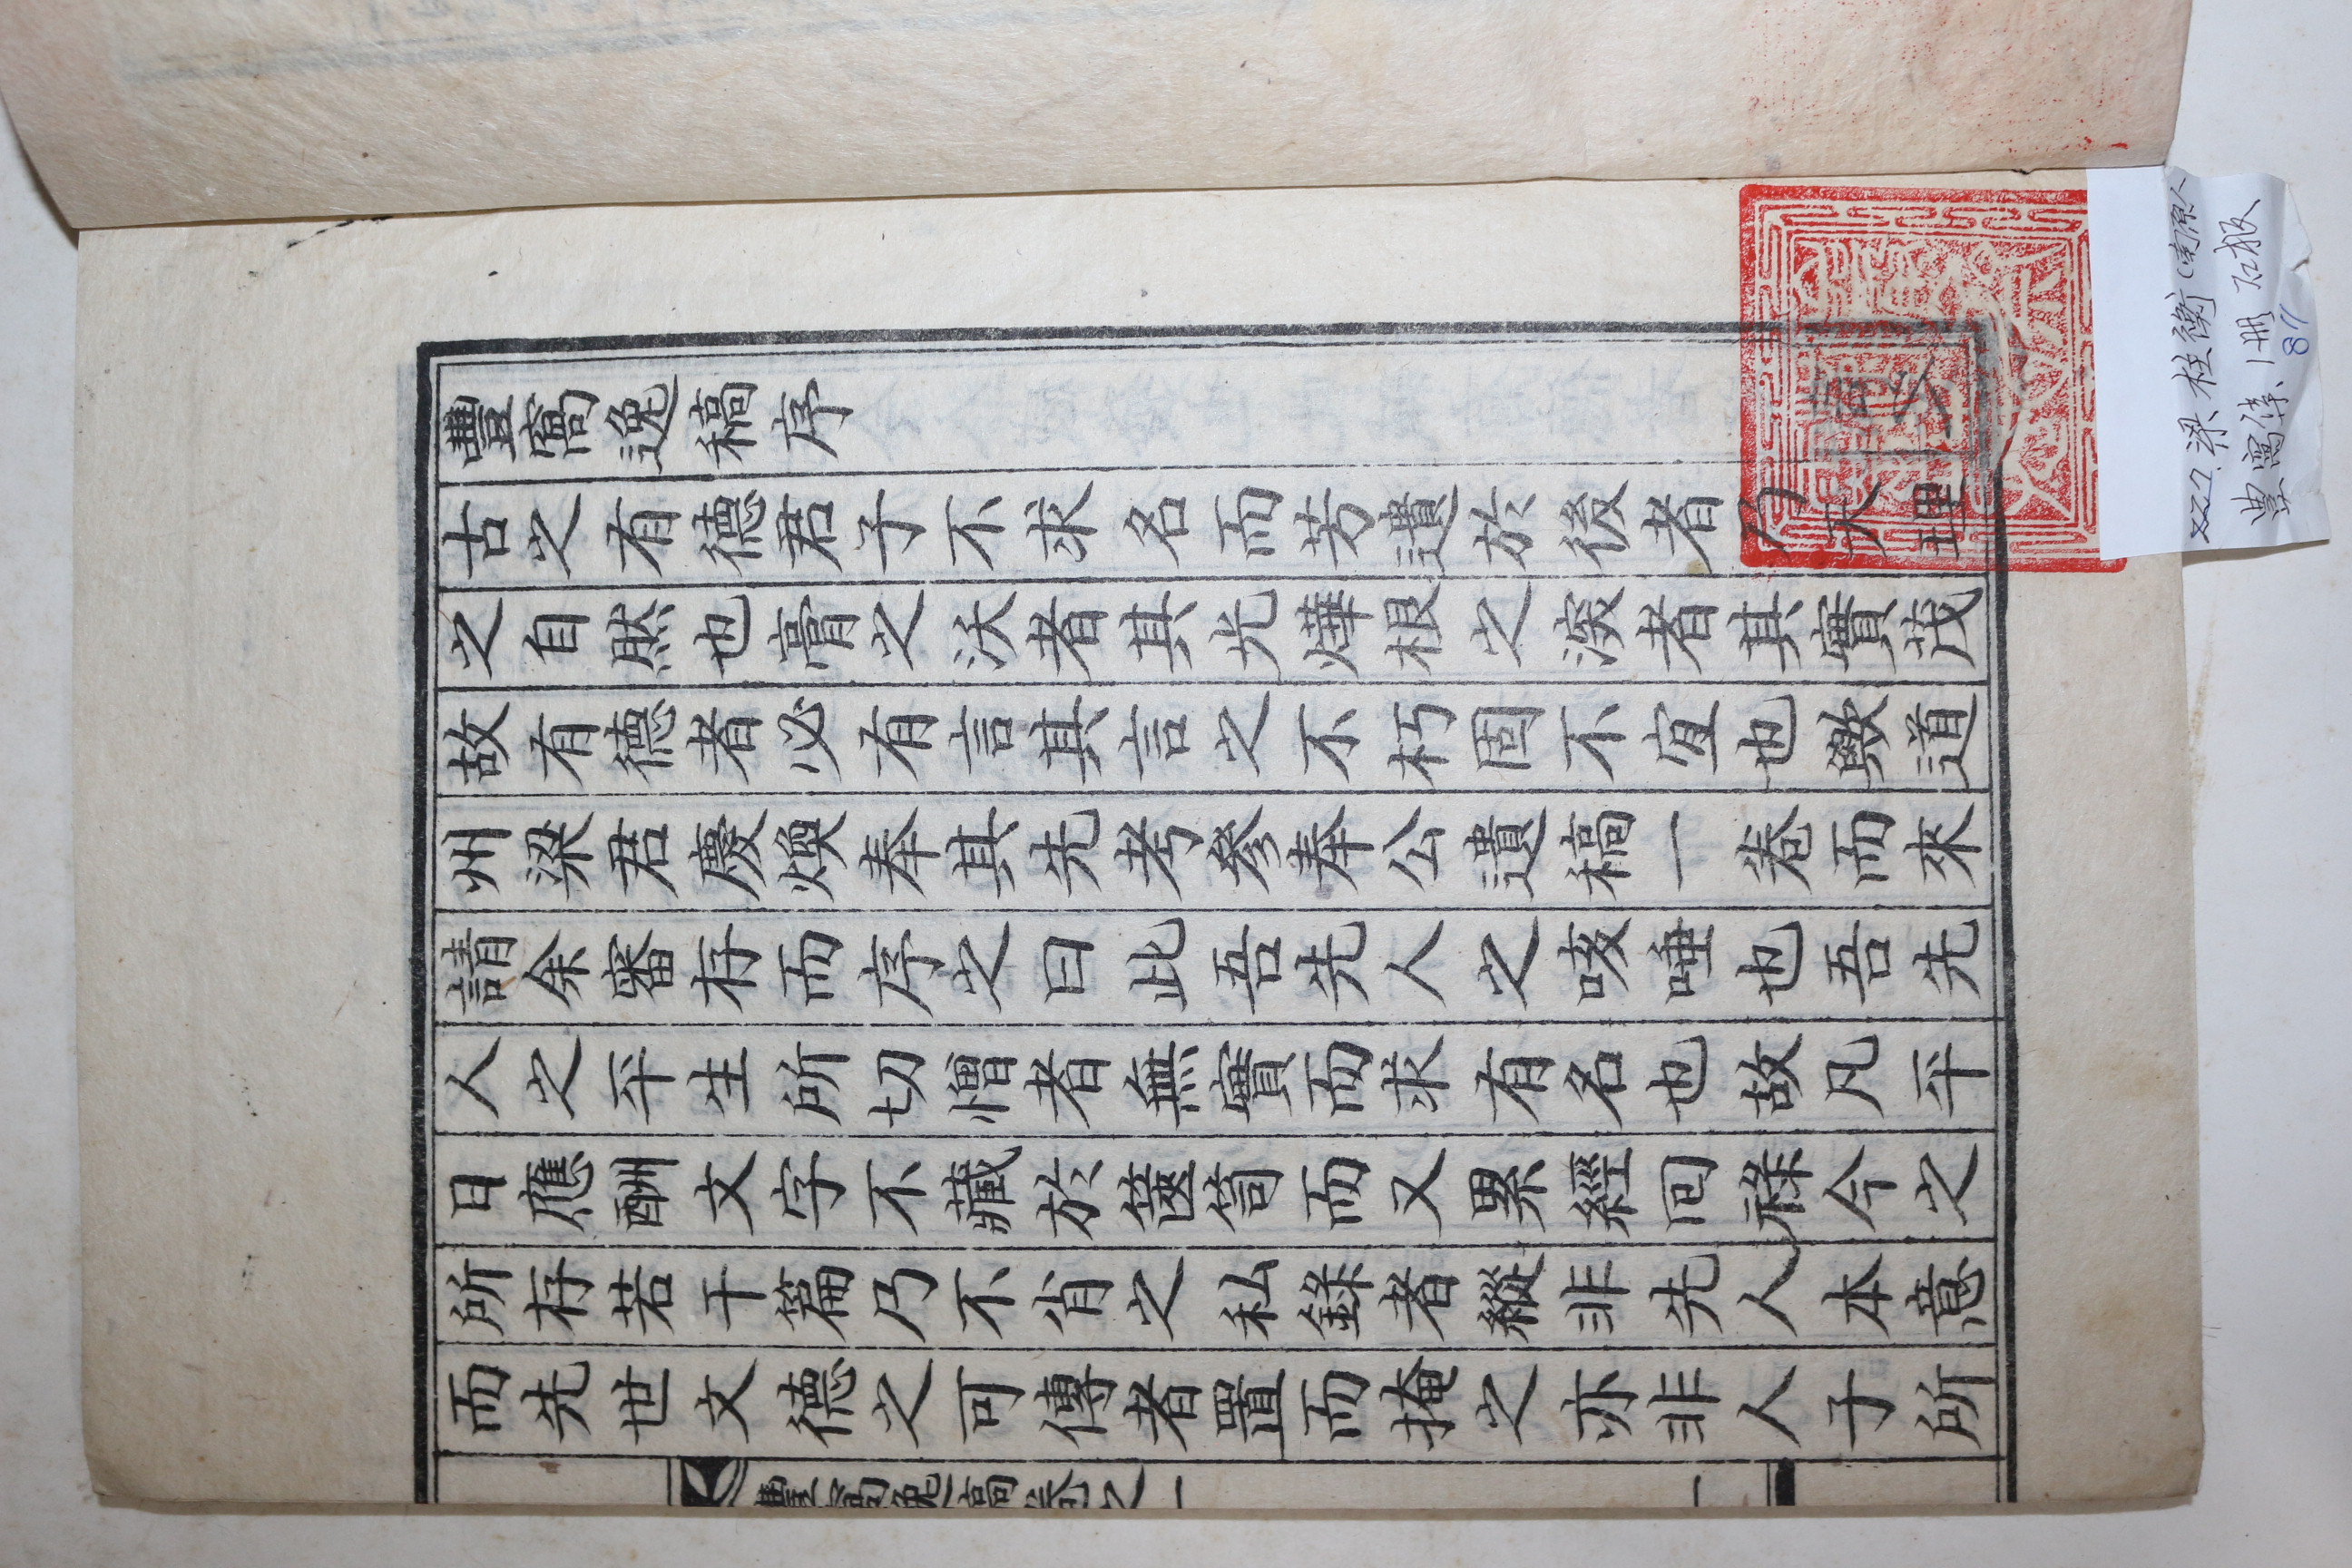 豐窩逸稿序
古之有德君子不求名而芳遺於後者乃天理
之自然也膏之沃者其光燁根之深者其實茂
故有德者必有言其言之不朽固不宜也歟道
州梁君慶煥奉其先考參奉公遺稿一卷而來
請余審存而序之曰此吾先人之咳唾也吾先
人之平生所切憎者無實而求有名也故凡平
日應酬文字不藏於篋笥而又累經回祿今之
所存若干篇乃不肖之私錄者縱非先人本意
而先世文德之可傳者置而掩之亦非人子所
豐窩逸稿卷之一
一
227. 梁柱衡(南原人
豊窩集. 1冊 石板
811